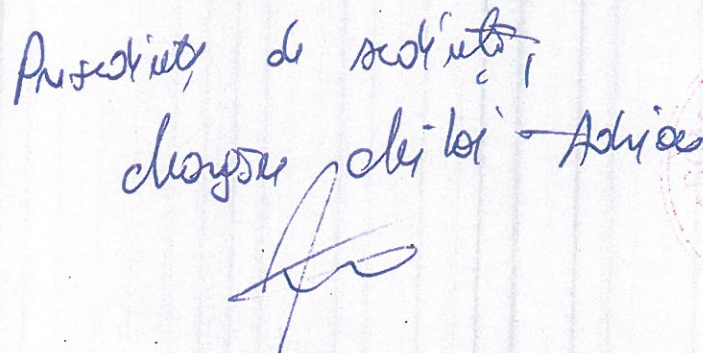 Președinte de ședință,
Mihai-Adrian